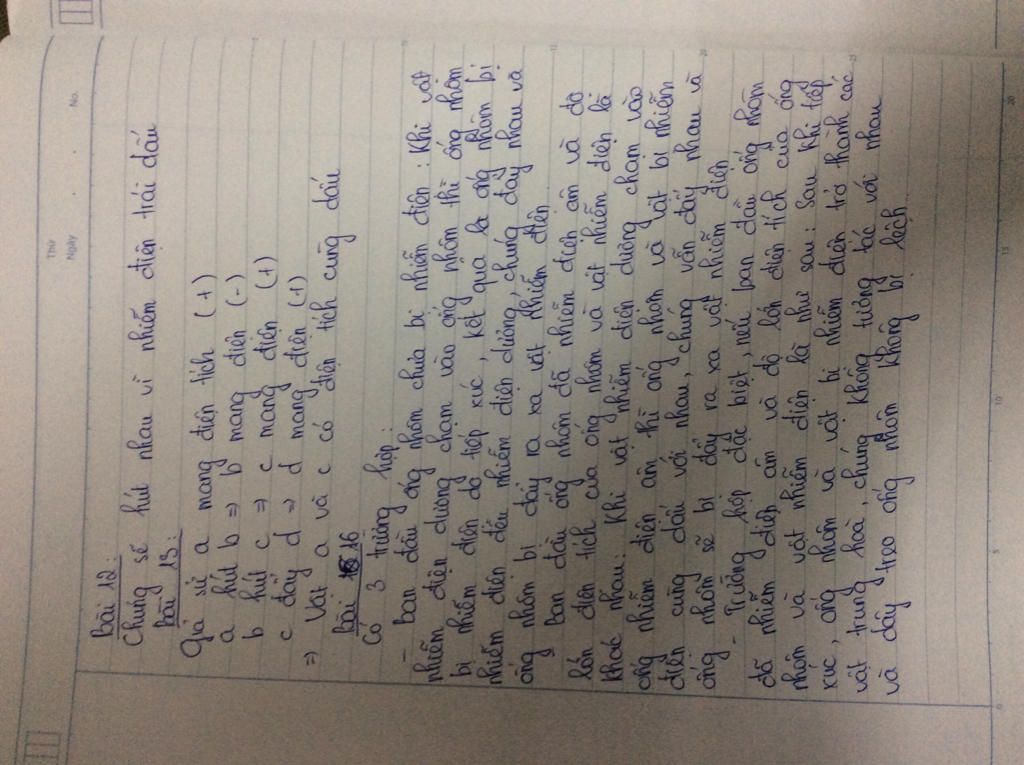 Thứ
Ngày
No.
Bài 12:
Chúng sẽ hút nhau vì nhiễm điện trái dấu
Bài 13:
Giả sử a mang điện tích (+)
a hút b => b mang điện (-)
b hút c => c mang điện (+)
c đẩy d => d mang điện (+)
=> Vật a và c có điện tích cùng dấu
Bài 16
Có 3 trường hợp:
- Ban đầu ống nhôm chưa bị nhiễm điện: Khi vật
nhiễm điện dương chạm vào ống nhôm thì ống nhôm
bị nhiễm điện do tiếp xúc, kết quả là ống nhôm bị
nhiễm điện đều nhiễm điện dương, chúng đẩy nhau và
ống nhôm bị đẩy ra xa vật nhiễm điện
- Ban đầu ống nhôm đã nhiễm điện âm và độ
lớn điện tích của ống nhôm và vật nhiễm điện là
khác nhau: Khi vật nhiễm điện dương chạm vào
ống nhiễm điện âm thì ống nhôm và vật bị nhiễm
điện cùng dấu với nhau, chúng vẫn đẩy nhau và
ống nhôm sẽ bị đẩy ra xa vật nhiễm điện
- Trường hợp đặc biệt, nếu ban đầu ống nhôm
đã nhiễm điện âm và độ lớn điện tích của ống
nhôm và vật nhiễm điện là như sau: Sau khi tiếp
xúc, ống nhôm và vật bị nhiễm điện trở thành các
vật trung hoà, chúng không tương tác với nhau
và dây treo ống nhôm không bị lệch
0
5
10
15
20